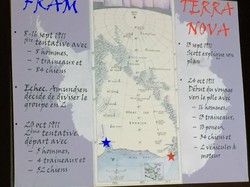 FRAM
8-16 sept 1911
1ère tentative avec
- 8 hommes,
- 7 traineaux et
- 84 chiens
Echec. Amundsen
décide de diviser le
groupe en 2
20 oct 1911
2ème tentative,
départ avec
- 5 hommes,
- 4 traineaux et
- 52 chiens
TERRA
NOVA
13 sept 1911
Scott explique son
plan
24 oct 1911
Début du voyage
vers le pôle avec
- 16 hommes,
- 13 traineaux,
- 10 poneys,
- 34 chiens et
- 2 véhicules à
moteur